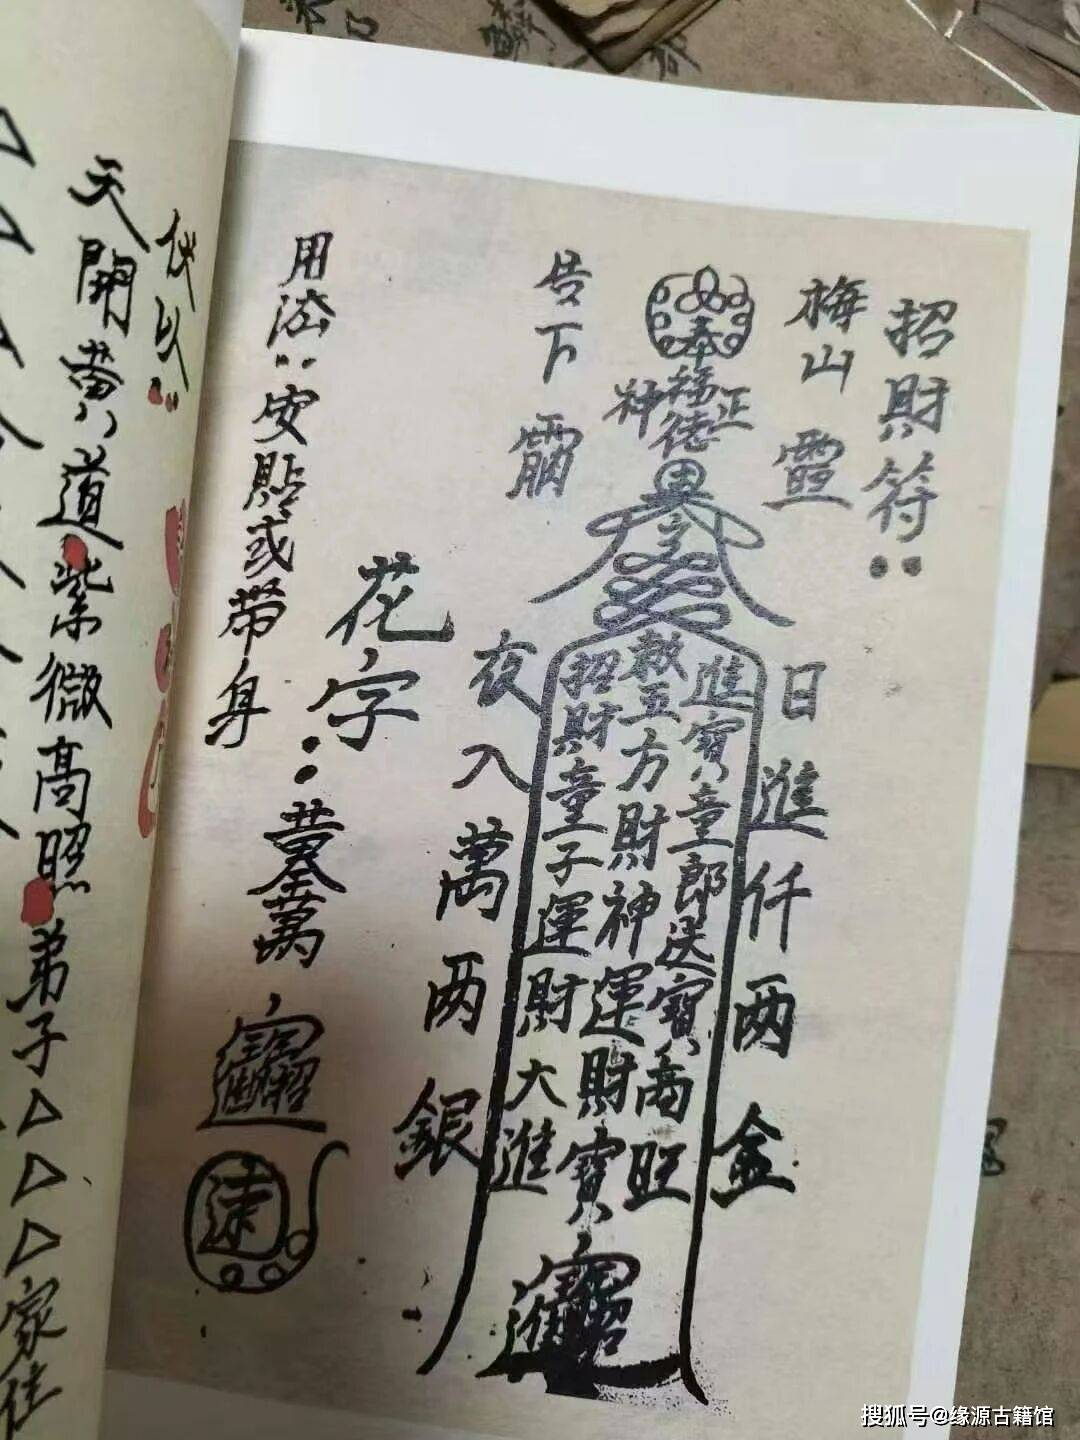 招財符：
梅山
告下
奉
福德
正
神
日進仟两金
敕五方財神運財寶
進寶童郎送寶商旺
招財童子運財大進
夜入萬两銀
花字：
黄金萬
用法：安貼或帶身
伏以：
天開黄道紫微高照弟子△△△家住
搜狐号@缘源古籍馆